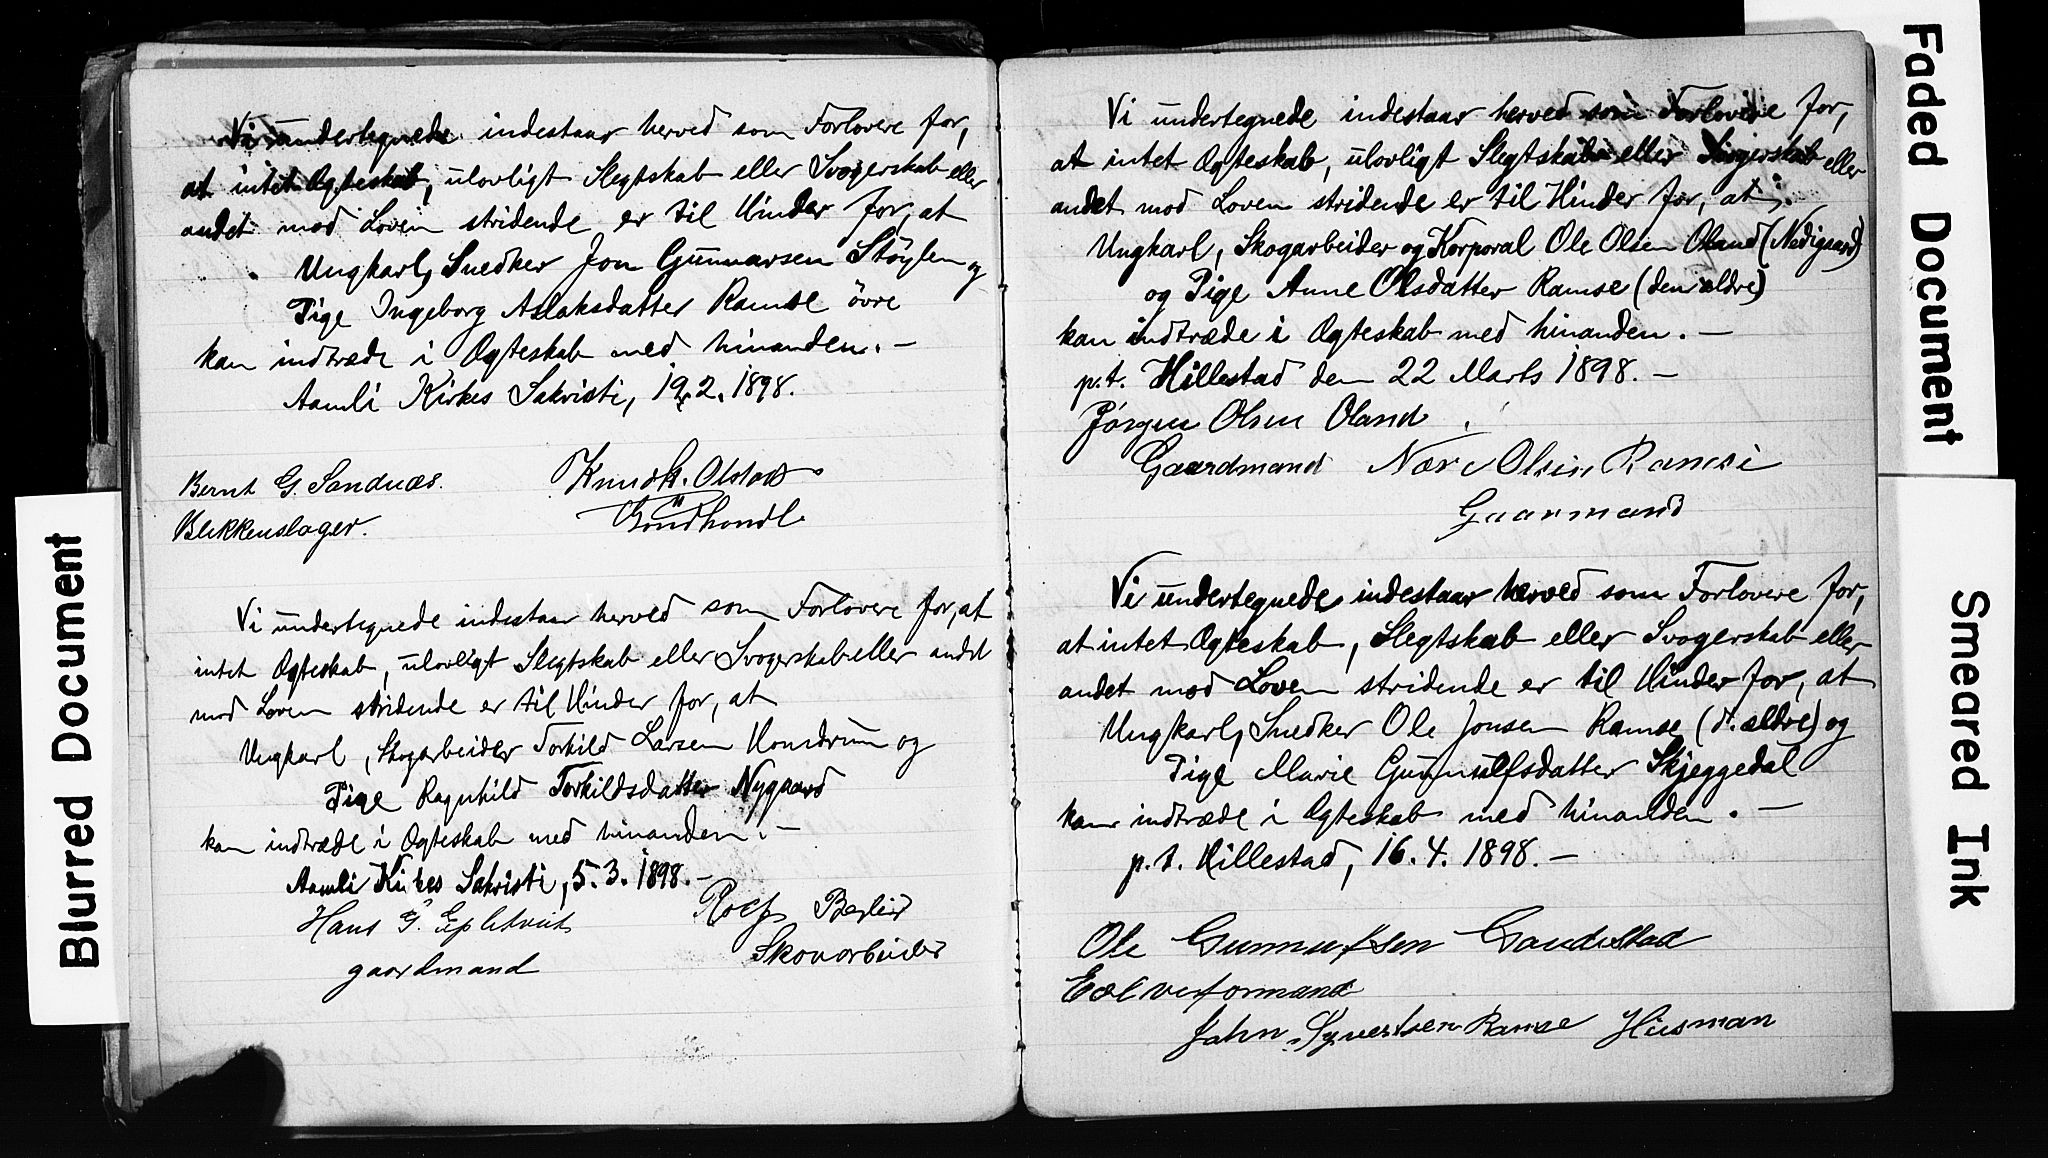 Vi undertegnede indestaar herved som Forlovere for,
at intet Ægteskab, ulovligt Slegtskab eller Svogerskab eller
andet mod Loven stridende er til Hinder for, at
Ungkarl, Snedker Jon Gunnarsen Stöylen og
Pige Ingeborg Aslaksdatter Ramse övre
kan indtræde i Ægteskab med hinanden. —
Aamli Kirkes Sakristi, 19.2.1898.
Bernt G. Sandnæs.
Blikkenslager.
Knud K. Olstad
Vi undertegnede indestaar herved som Forlovere for, at
intet Ægteskab, ulovligt Slegtskab eller Svogerskab eller andet
mod Loven stridende er til Hinder for, at
Ungkarl, Skogarbeider Torkild Larsen Homdrum og
Pige Ragnhild Torkildsdatter Nygaard
kan indtræde i Ægteskab med hinanden. —
Aamli Kirkes Sakristi, 5.3.1898. —
Hans G. Epletveit
gaardmand
Rolf Berlid
Skovarbeider
Vi undertegnede indestaar herved som Forlovere for,
at intet Ægteskab, ulovligt Slegtskab eller Svogerskab eller
andet mod Loven stridende er til Hinder for, at
Ungkarl, Skogarbeider og Korporal Ole Olsen Oland (Nedigaard)
og Pige Anne Olsdatter Ramse (den ældre)
kan indtræde i Ægteskab med hinanden. —
p.t. Hillestad den 22 Marts 1898. —
Jørgen Olsen Oland
Gaardmand
Olsen Ramse
Gaarmand
Vi undertegnede indestaar herved som Forlovere for,
at intet Ægteskab, Slegtskab eller Svogerskab eller
andet mod Loven stridende er til Hinder for, at
Ungkarl, Snedker Ole Jonsen Ramse (d. ældre) og
Pige Marie Gunnulfsdatter Skjeggedal
kan indtræde i Ægteskab med hinanden. —
p.t. Hillestad, 16.4.1898. —
Ole Gunnulfsen Gandestad
John Syvertsen Ramse Husman
Blurred Document
Faded Document
Smeared Ink